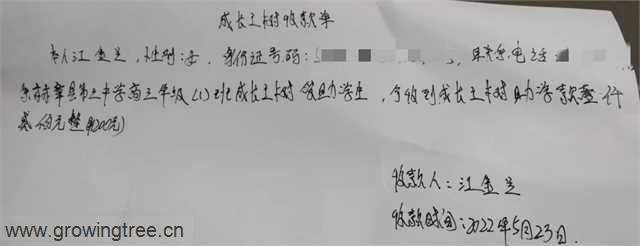 成长之树收款单
本人江金兰,性别:女,身份证号码:5 联系电话
系赫章县第三中学高三年级(1)班成长之树受助学生,今收到成长之树助学款壹仟
叁佰元整
收款人:江金兰
收款时间:2022年5月23日.
www.growingtree.cn